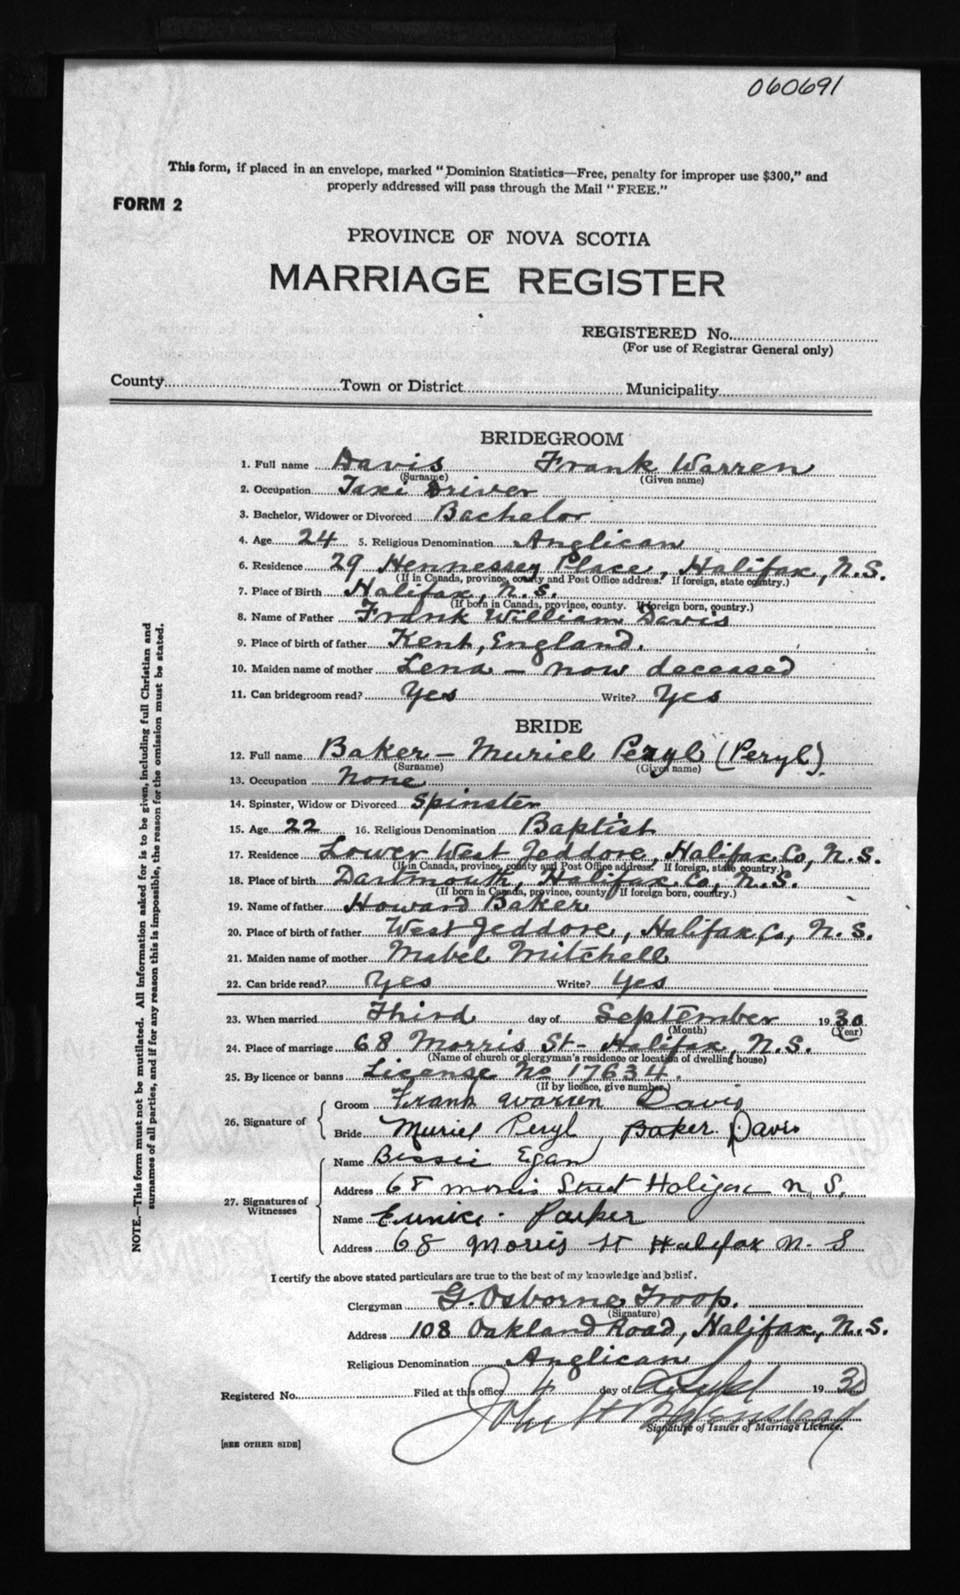 060691
This form, if placed in an envelope, marked "Dominion Statistics—Free, penalty for improper use $300," and
properly addressed will pass through the Mail "FREE."
FORM 2
PROVINCE OF NOVA SCOTIA
MARRIAGE REGISTER
REGISTERED No.
(For use of Registrar General only)
County Town or District Municipality
BRIDEGROOM
1. Full name Davis Frank Warren
(Surname) (Given name)
2. Occupation Taxi Driver
3. Bachelor, Widower or Divorced Bachelor
4. Age 24 5. Religious Denomination Anglican
6. Residence 29 Hennessey Place, Halifax, N.S.
(If in Canada, province, county and Post Office address. If foreign, state country.)
7. Place of Birth Halifax, N.S.
(If born in Canada, province, county. If foreign born, country.)
8. Name of Father Frank William Davis
9. Place of birth of father Kent, England.
10. Maiden name of mother Lena — now deceased
11. Can bridegroom read? Yes Write? Yes
BRIDE
12. Full name Baker — Muriel Peryl (Peryl)
(Surname) (Given name)
13. Occupation None
14. Spinster, Widow or Divorced Spinster
15. Age 22 16. Religious Denomination Baptist
17. Residence Lower West Jeddore, Halifax Co, N.S.
(If in Canada, province, county and Post Office address. If foreign, state country.)
18. Place of birth Dartmouth, Halifax Co, N.S.
(If born in Canada, province, county. If foreign born, country.)
19. Name of father Howard Baker
20. Place of birth of father West Jeddore, Halifax Co, N.S.
21. Maiden name of mother Mabel Mitchell
22. Can bride read? Yes Write? Yes
23. When married Third day of September 1930
(Month) (Year)
24. Place of marriage 68 Morris St - Halifax, N.S.
(Name of church or clergyman's residence or location of dwelling house)
25. By licence or banns License No 17634.
(If by licence, give number)
26. Signature of
Groom Frank Warren Davis
Bride Muriel Peryl, Baker Davis
27. Signatures of Witnesses
Name Bessie Egan
Address 68 Morris Street Halifax N.S.
Name Eunice Parker
Address 68 Morris St Halifax N.S
I certify the above stated particulars are true to the best of my knowledge and belief.
Clergyman G. Osborne Troop.
(Signature)
Address 108 Oakland Road, Halifax, N.S.
Religious Denomination Anglican
Registered No. Filed at this office 4 day of 1930
John H
Signature of Issuer of Marriage Licence.
[SEE OTHER SIDE]
NOTE.—This form must not be mutilated. All information asked for is to be given, including full Christian and
surnames of all parties, and if for any reason this is impossible, the reason for the omission must be stated.